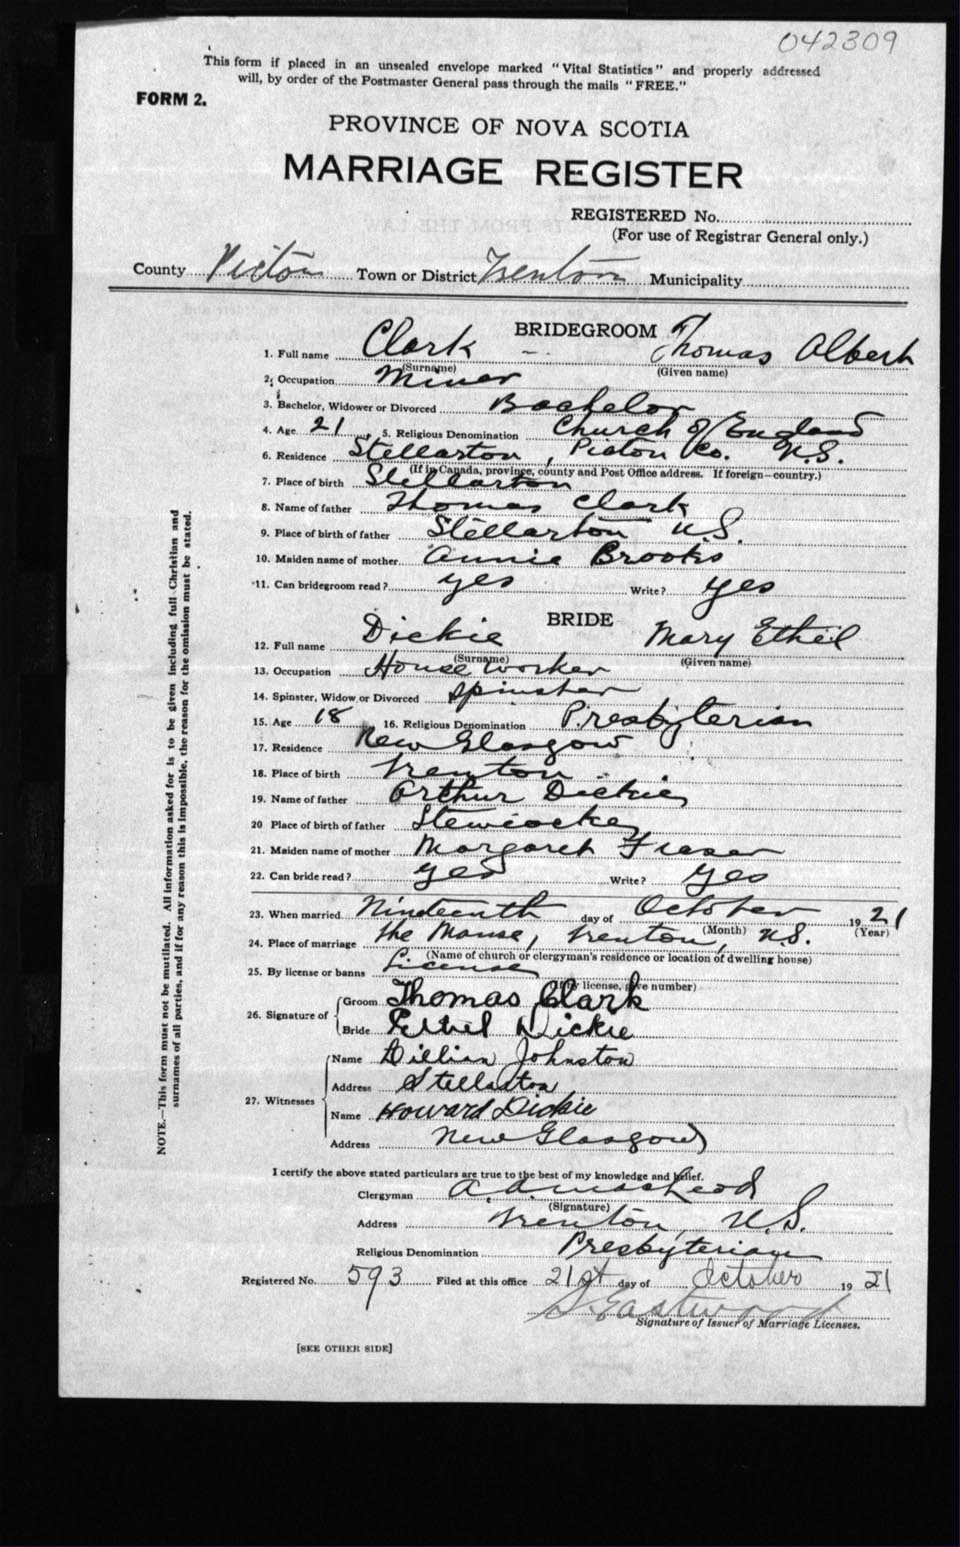 042309
This form if placed in an unsealed envelope marked "Vital Statistics" and properly addressed
will, by order of the Postmaster General pass through the mails "FREE."
FORM 2.
PROVINCE OF NOVA SCOTIA
MARRIAGE REGISTER
REGISTERED No.
(For use of Registrar General only.)
County Pictou Town or District Trenton Municipality
BRIDEGROOM
1. Full name Clark Thomas Albert
(Surname) (Given name)
2. Occupation Miner
3. Bachelor, Widower or Divorced Bachelor
4. Age 21 5. Religious Denomination Church of England
6. Residence Stellarton, Pictou Co. N.S.
(If in Canada, province, county and Post Office address. If foreign—country.)
7. Place of birth Stellarton
8. Name of father Thomas Clark
9. Place of birth of father Stellarton N.S.
10. Maiden name of mother Annie Brooks
11. Can bridegroom read? yes Write? yes
BRIDE
12. Full name Dickie Mary Ethel
(Surname) (Given name)
13. Occupation House worker
14. Spinster, Widow or Divorced Spinster
15. Age 18 16. Religious Denomination Presbyterian
17. Residence New Glasgow
18. Place of birth Trenton
19. Name of father Arthur Dickie
20 Place of birth of father
21. Maiden name of mother Margaret Fraser
22. Can bride read? yes Write? yes
23. When married Nineteenth day of October 1921
(Month) (Year)
24. Place of marriage The Manse, Trenton, N.S.
(Name of church or clergyman's residence or location of dwelling house)
25. By license or banns License
(If by license, give number)
26. Signature of Groom Thomas Clark
Bride Ethel Dickie
27. Witnesses
Name Lillian Johnston
Address Stellarton
Name Howard Dickie
Address New Glasgow
I certify the above stated particulars are true to the best of my knowledge and belief.
Clergyman A.D. MacLeod
(Signature)
Address Trenton, N.S.
Religious Denomination Presbyterian
Registered No. 593 Filed at this office 21st day of October 1921
S. Eastwood
Signature of Issuer of Marriage Licenses.
[SEE OTHER SIDE]
NOTE.—This form must not be mutilated. All information asked for is to be given including full Christian and
surnames of all parties, and if for any reason this is impossible, the reason for the omission must be stated.